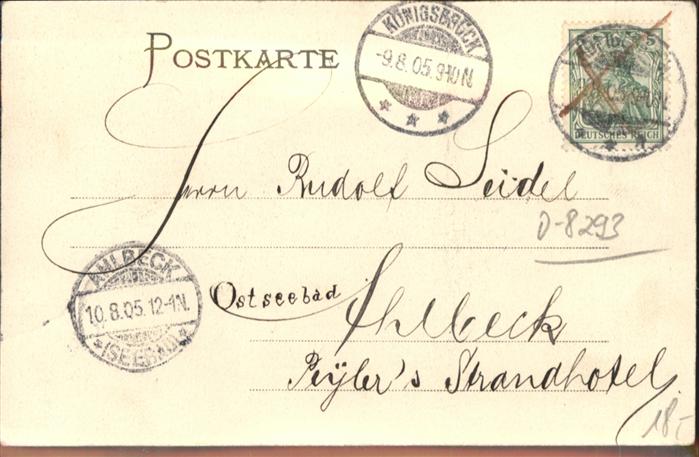 POSTKARTE
KÖNIGSBRÜCK
-9.8.05.9-10N.
5
DEUTSCHES REICH
Herrn Rudolf Seidel
D-8293
AHLBECK
10.8.05.12-1N.
*(SEEBAD)*
Ostseebad
Ahlbeck
Strandhotel
18,-